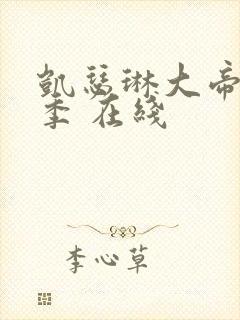 凯瑟琳大帝
季 在线
李心草